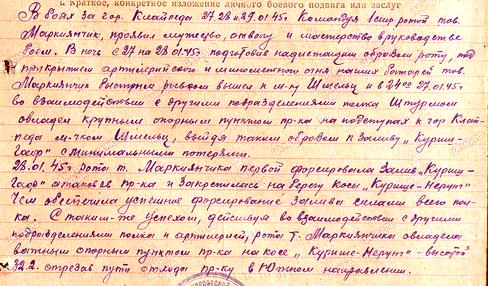 I. Краткое, конкретное изложение личного боевого подвига или заслуг
В боях за гор. Клайпеда 27.28 и 29.01.45г Командуя 1 стр. ротой тов.
Маркиянчик, проявил мужество, отвагу и мастерство в руководстве
боем. В ночь с 27 на 28.01.45г подготовив надлежащим образом роту, под
прикрытием артиллерийского и минометного огня наших батарей тов.
Маркиянчик быстрым рывком вышел к м-ку Шмельц и в 24-00 27.01.45г
во взаимодействии с другими подразделениями полка Штурмом
овладел крупным опорным пунктом пр-ка на подступах к гор Клай-
педа м-чком Шмельц, выйдя таким образом к заливу „Куриш-
Гаф" с минимальными потерями.
28.01.45г рота т. Маркиянчика первой форсировала залив „Куриш-
Гаф" атаковав пр-ка и закрепилась на берегу косы „Курише-Нерунг"
Чем обеспечила успешное форсирование залива силами всего пол-
ка. С таким-же успехом, действуя во взаимодействии с другими
подразделениями полка и артиллерией, рота т. Маркиянчика овладела
важным опорным пунктом пр-ка на косе „Курише-Нерунг" - высотой
32.2. отрезав пути отхода пр-ку в Южном направлении.